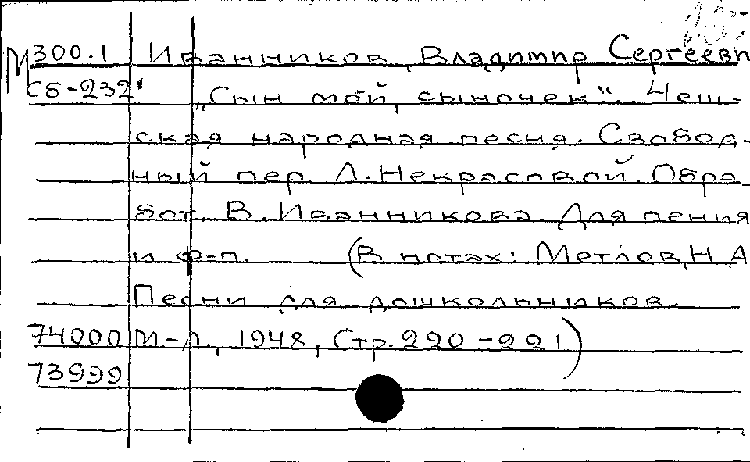 М 300.1 Иванников, Владимир Сергеевич
Сб-232 "Сын мой, сыночек". Чеш-
ская народная песня. Свобод-
ный пер. Л. Некрасовой. Обра-
бот. В. Иванникова. Для пения
и ф-п. (В нотах: Метлов, Н.А.
Песни для дошкольников.
74000 М-Л., 1948, Стр. 220-221)
73999